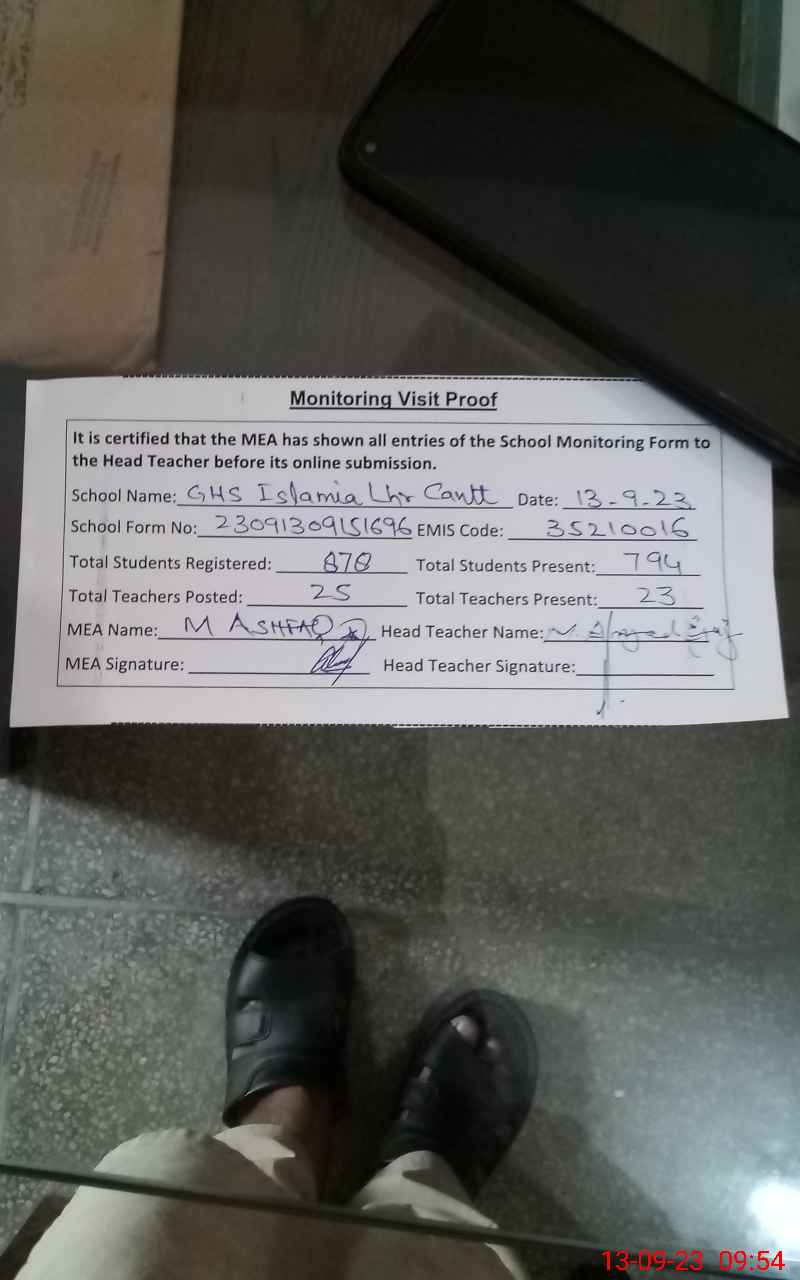 Monitoring Visit Proof
It is certified that the MEA has shown all entries of the School Monitoring Form to
the Head Teacher before its online submission.
School Name: GHS Islamia Lhr Cantt Date: 13-9-23
School Form No: 23091309151696 EMIS Code: 35210016
Total Students Registered: 878 Total Students Present: 794
Total Teachers Posted: 25 Total Teachers Present: 23
MEA Name: M ASHFAQ Head Teacher Name:
MEA Signature: Head Teacher Signature:
13-09-23 09:54